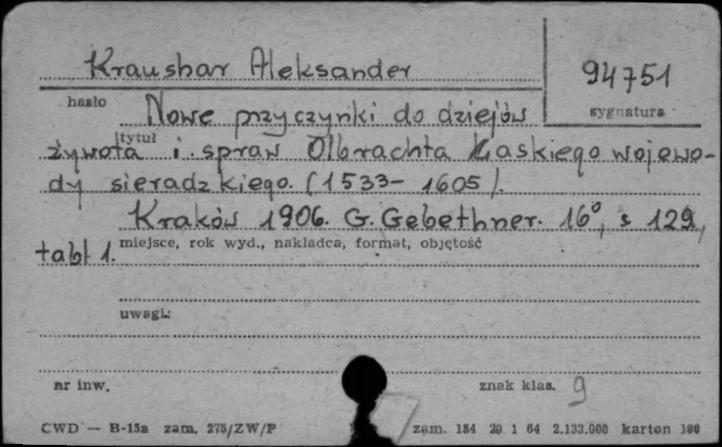 Kraushar Aleksander
94751
hasło
sygnatura
Nowe przyczynki do dziejów
tytuł
żywota i spraw Olbrachta Łaskiego wojewo-
dy sieradzkiego. (1533- 1605).
Kraków 1906. G. Gebethner. 16°, s 129,
tabl 1.
miejsce, rok wyd., nakładca, format, objętość
uwagi:
nr inw.
znak klas. 9
CWD — B-15a zam. 275/ZW/P
zam. 154 29 1 64 2.133.000 karton